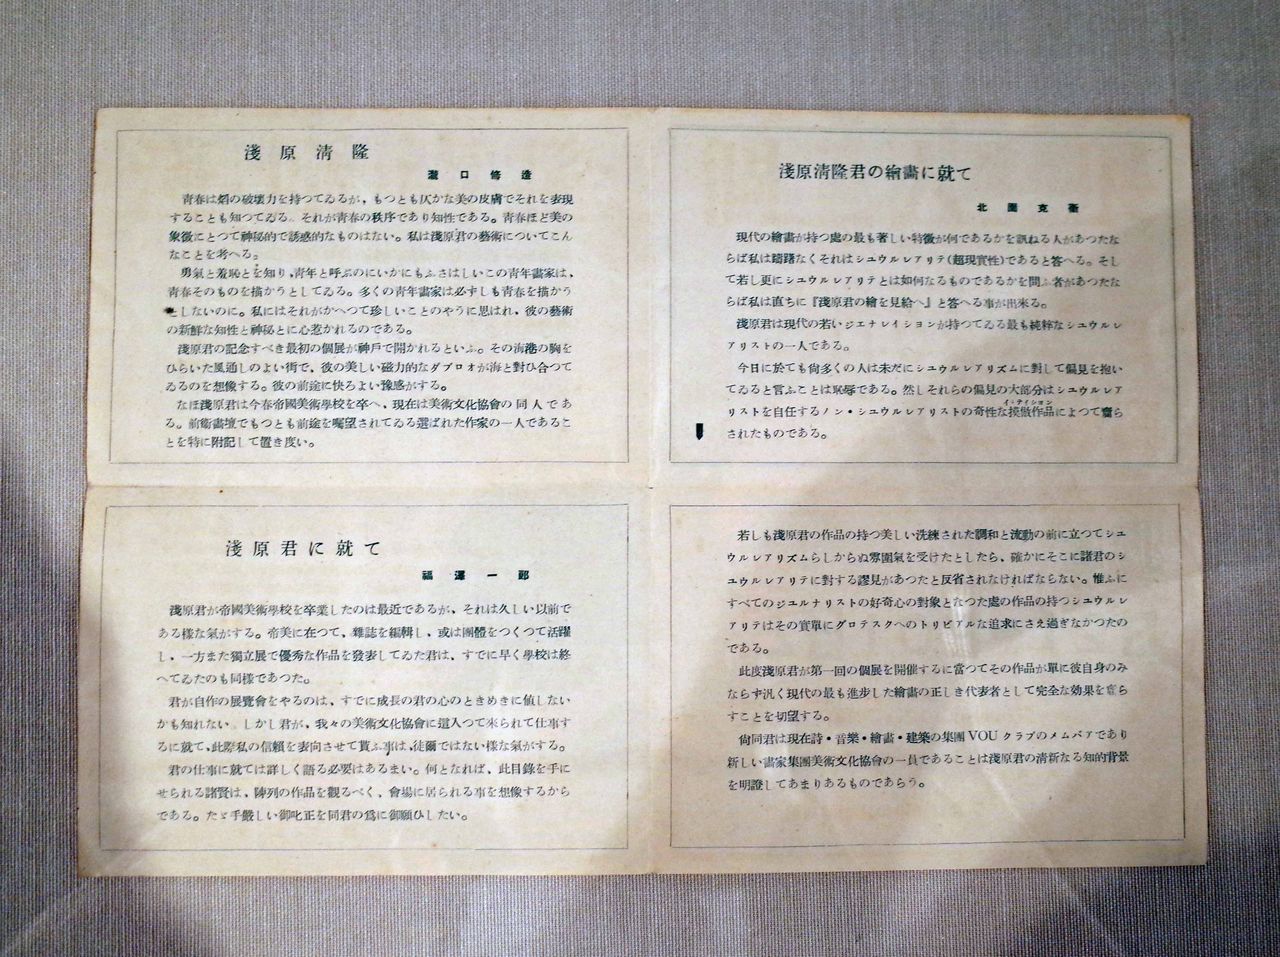 淺原淸隆
瀧口修造
靑春は焰の破壞力を持つてゐるが、もつとも仄かな美の皮膚でそれを表現
することも知つてゐる。それが靑春の秩序であり知性である。靑春ほど美の
象徵にとつて神秘的で誘惑的なものはない。私は淺原君の藝術についてこん
なことを考へる。
勇氣と羞恥とを知り、靑年と呼ぶのにいかにもふさはしいこの靑年畫家は、
靑春そのものを描かうとしてゐる。多くの靑年畫家は必ずしも靑春を描かう
としないのに。私にはそれがかへつて珍しいことのやうに思はれ、彼の藝術
の新鮮な知性と神秘とに心惹かれるのである。
淺原君の記念すべき最初の個展が神戶で開かれるといふ。その海港の胸を
ひらいた風通しのよい街で、彼の美しい磁力的なダブロオが海と對ひ合つて
ゐるのを想像する。彼の前途に快ろよい豫感がする。
なほ淺原君は今春帝國美術學校を卒へ、現在は美術文化協會の同人であ
る。前衞畫壇でもつとも前途を囑望されてゐる選ばれた作家の一人であるこ
とを特に附記して置き度い。
淺原淸隆君の繪畫に就て
北園克衞
現代の繪畫が持つ處の最も著しい特徵が何であるかを訊ねる人があつたな
らば私は躊躇なくそれはシユウルレアリテ(超現實性)であると答へる。そし
て若し更にシユウルレアリテとは如何なるものであるかを問ふ者があつたな
らば私は直ちに『淺原君の繪を見給へ』と答へる事が出來る。
淺原君は現代の若いジエナレイシヨンが持つてゐる最も純粹なシユウルレ
アリストの一人である。
今日に於ても尙多くの人は未だにシユウルレアリズムに對して偏見を抱い
てゐると言ふことは恥辱である。然しそれらの偏見の大部分はシユウルレア
リストを自任するノン・シユウルレアリストの奇性な摸倣作品によつて齎ら
されたものである。
淺原君に就て
福澤一郞
淺原君が帝國美術學校を卒業したのは最近であるが、それは久しい以前で
ある樣な氣がする。帝美に在つて、雜誌を編輯し、或は團體をつくつて活躍
し、一方また獨立展で優秀な作品を發表してゐた君は、すでに早く學校は終
へてゐたのも同樣であつた。
君が自作の展覽會をやるのは、すでに成長の君の心のときめきに値しない
かも知れない。しかし君が、我々の美術文化協會に這入つて来られて仕事す
るに就て、此際私の信賴を表向させて貰ふ事は、徒爾ではない樣な氣がする。
君の仕事に就ては詳しく語る必要はあるまい。何となれば、此目錄を手に
せられる諸賢は、陳列の作品を觀るべく、會場に居られる事を想像するから
である。たゞ手嚴しい御叱正を同君の爲に御願ひしたい。
若しも淺原君の作品の持つ美しい洗練された調和と流動の前に立つてシユ
ウルレアリズムらしからぬ雰圍氣を受けたとしたら、確かにそこに諸君のシ
ユウルレアリテに對する謬見があつたと反省されなければならない。惟ふに
すべてのジユルナリストの好奇心の對象となつた處の作品の持つシユウルレ
アリテはその實單にグロテスクへのトリビアルな追求にさえ過ぎなかつたの
である。
此度淺原君が第一回の個展を開催するに當つてその作品が單に彼自身のみ
ならず汎く現代の最も進步した繪畫の正しき代表者として完全な効果を齎ら
すことを切望する。
尙同君は現在詩・音樂・繪畫・建築の集團VOUクラブのメムバアであり
新しい畫家集團美術文化協會の一員であることは淺原君の淸新なる知的背景
を明證してあまりあるものであらう。